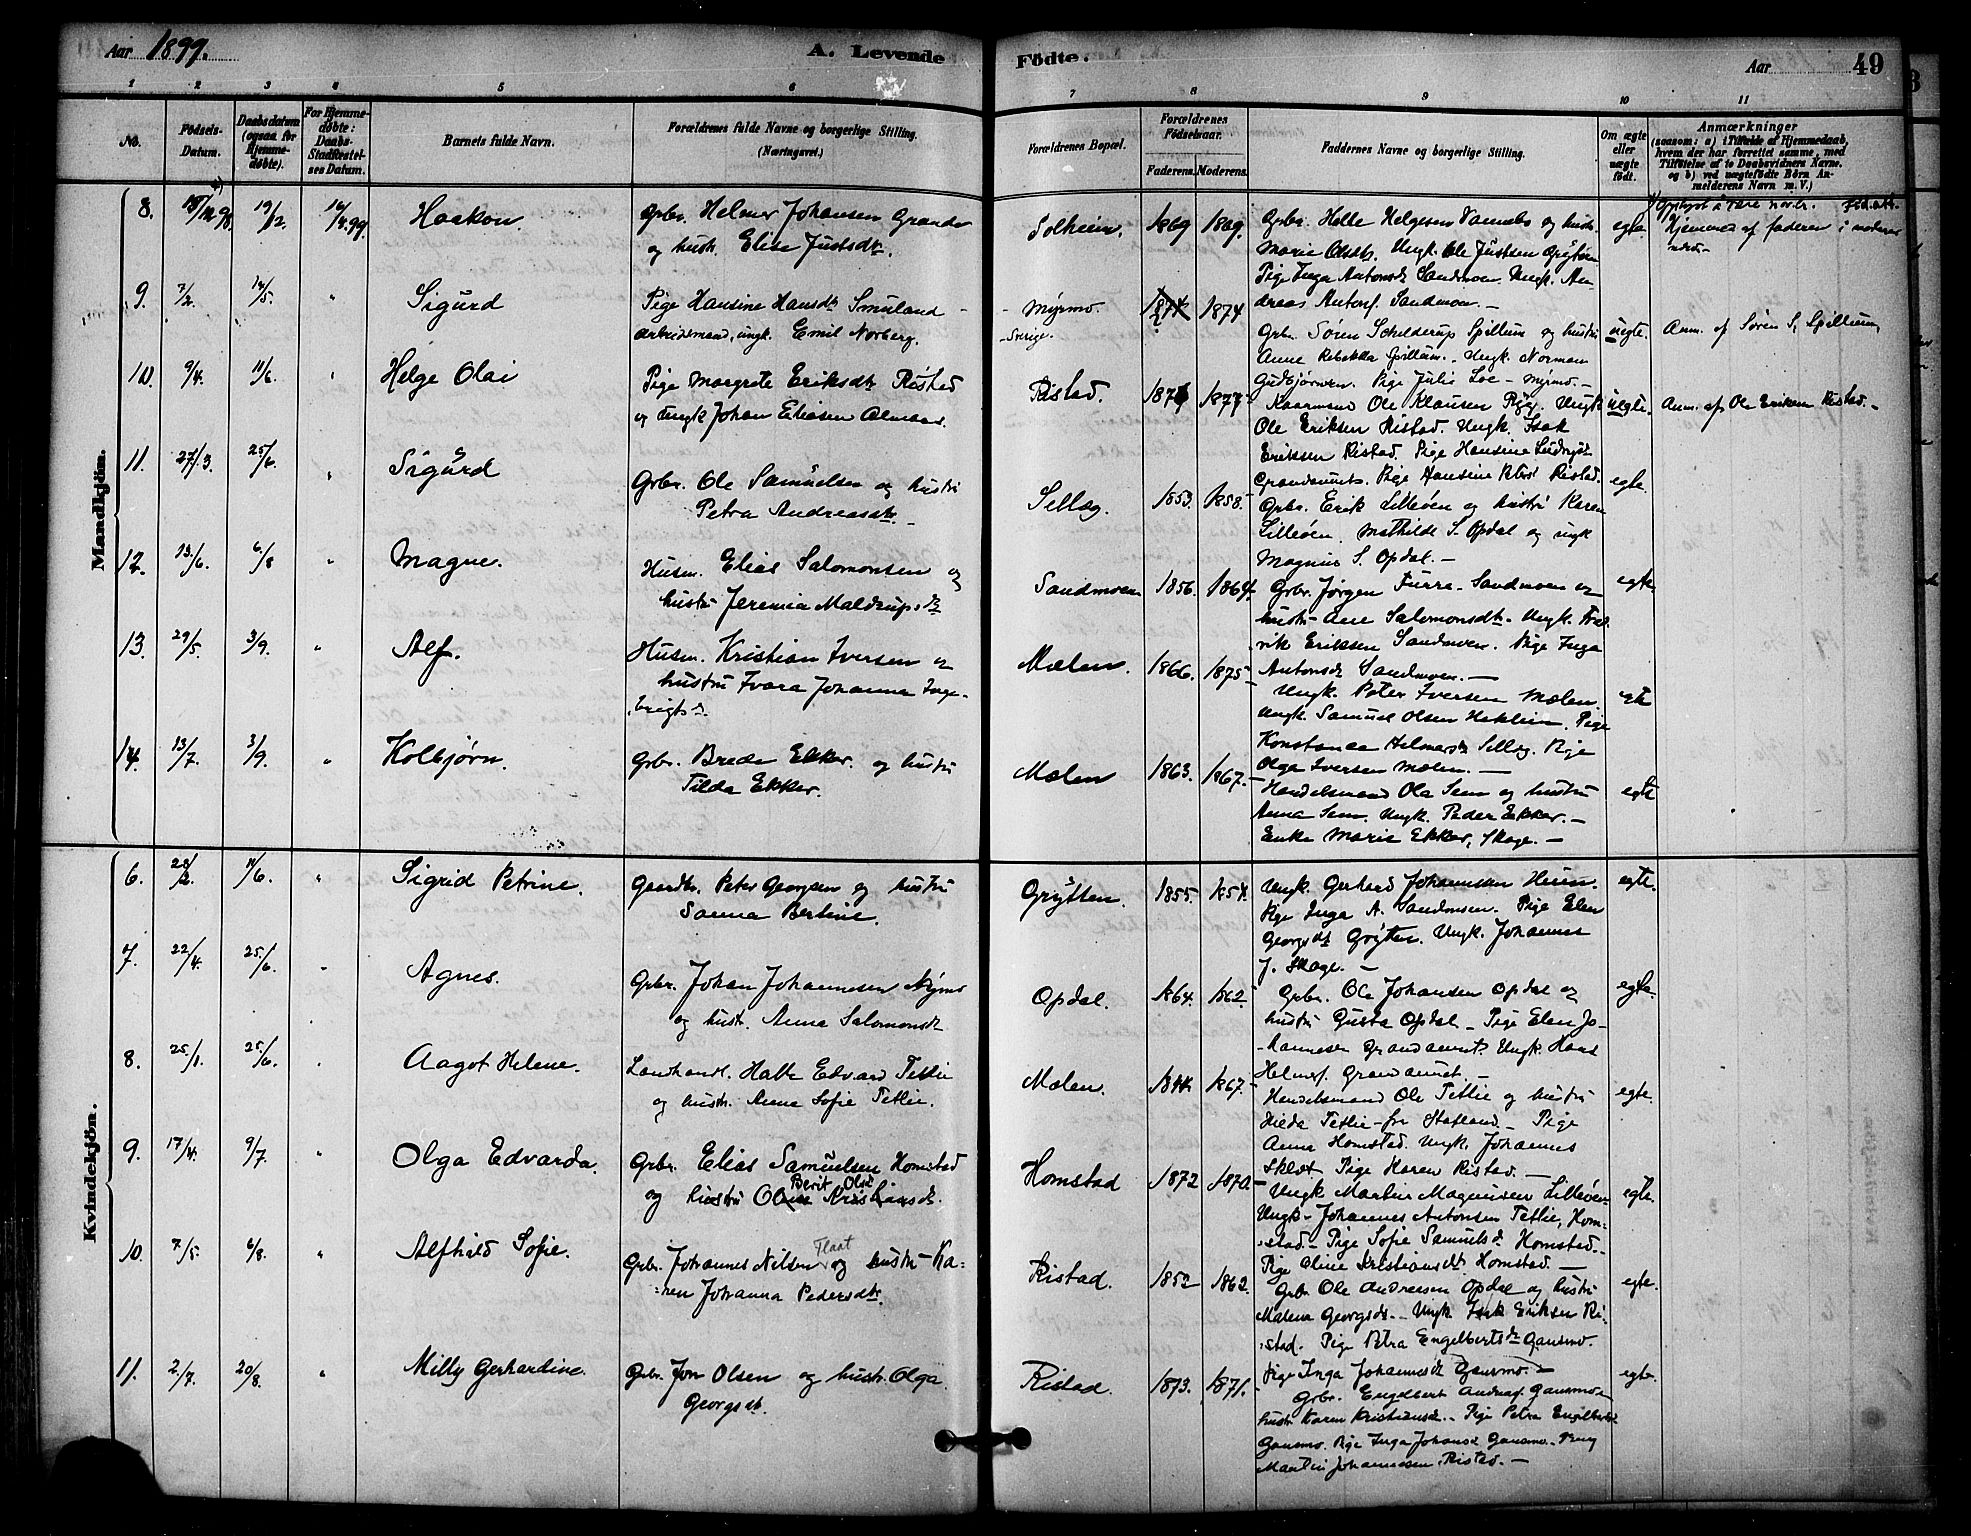 Aar 1899.
A. Levende
Födte.
Aar
49
1 2 3 4 5 6 7 8 9 10 11
No.
Födsels-
Datum.
Daabsdatum
(ogsaa for
Hjemme-
døbte).
For Hjemme-
døbte:
Daabs-
Stadfæstel-
ses Datum.
Barnets fulde Navn.
Forældrenes fulde Navne og borgerlige Stilling.
(Næringsvei.)
Forældrenes Bopæl.
Forældrenes
Födselsaar.
Faderens. Moderens.
Faddernes Navne og borgerlige Stilling.
Om ægte
eller
uægte
födt.
Anmærkninger
(saasom: a) i Tilfælde af Hjemmedaab,
hvem der har forrettet samme, med
Tilföielse af to Daabsvidners Navne,
og b) ved uægtefödte Börn An-
melderens Navn m. V.)
Mandkjön.
8. 19/2. Haakon.
Grbr. Helmer Johansen Grande
og hustr. Elise Justsdtr.
Solheim. 1869 1869.
Grbr. Helle Helgesen Vannebo og hustr.
Marie Olsdtr. Ungk. Ole Justsen Grytten
Pige Inga Antonsdtr Sandmoen Ungk. An-
dreas Antons. Sandmoen. —
egte.
Hjemmed. af faderen i moderens
9. 7/2. 14/5. " Sigurd
Pige Hansine Hansdtr Smuland -
Arbeidsmand, ungk. Emil Norberg.
- Myrmo. 1874
- Sverige.
Grbr. Sören Schelderup Spillum og hustru
Anne Rebekka Spillum. Ungk. Norman
Gudbjörnsen. Pige Julie Loe - Myrmo. -
uegte.
Anm. af Sören S. Spillum
10. 9/4. 11/6. " Helge Olai
Pige Margrete Eriksdtr Ristad
og Ungk Johan Eliasen Almaas.
Ristad. 1877
Kaarmand Ole Klausen Ungk
Ole Eriksen Ristad. Ungk. Isak
Eriksen Ristad. Pige Hansine
Grandaunet. Pige Hansine Ristad.
uegte.
Anm. af Ole Eriksen Ristad. -
11. 27/3. 25/6. " Sigurd
Grbr. Ole Samuelsen og hustru
Petra Andreasdtr. -
Sellæg. 1853. 1858.
Grbr. Erik Lilleöen og hustri Karen
Lilleöen, Mathilde S. Opdal og ungk
Magnus S. Opdal. —
egte.
12. 13/6. 6/8 " Magne.
Husm. Elias Salomonsen og
hustru Jeremia Maldrupsdtr
Sandmoen 1856. 1864.
Grbr. Jörgen Furre - Sandmoen og
hustr- Ane Salomonsdtr. Ungk. Fred-
rik Eriksen Sandmoen. Pige Inga
Antonsdtr Sandmoen. —
egte.
13. 29/5. 3/9. " Alf.
Husm. Kristian Iversen og
hustru Ivara Johanna Inge-
brigtsd.
Mælen. 1866. 1875
Ungk. Peter Iversen Mælen.
Ungk. Samuel Olsen Heklien. Pige
Konstance Helmersdtr Sellæg. Pige
Olga Iversen Mælen. —
egte
14. 13/7. 3/9. " Kolbjørn.
Grbr. Brede Ekker. og hustru
Tilda Ekker.
Mælen 1863. 1867.
Handelsmand Ole Sem og hustru
Anna Sem. Ungk. Peder Ekker. -
Enke Marie Ekker, Skage. -
egte
Kvindekjön.
6. 28/2. 11/6. " Sigrid Petrine.
Gaardbr. Peter Georgsen og hustru
Sanna Bertine.
Grytten. 1855. 1854.
Ungk. Gerhard Johannessen Heien.
Pige Inga A. Sandmoen. Pige Elen
Georgsdtr Grytten. Ungk. Johannes
J. Skage. —
egte.
7. 22/4. 25/6. " Agnes.
Grbr. Johan Johannesen Myrmo
og hustr. Anna Salomonsdtr
Opdal. 1864. 1862.
Grbr. Ole Johansen Opdal og
hustru Gusta Opdal - Pige Elen Jo-
hannesen Grandaunet. Ungk. Hans
Helmers. Grandaunet —
egte.
8. 25/1. 25/6. " Aagot Helene.
Landhandl. Edvard Tetlie
og hustr. Anna Sofie Tetlie.
Mælen. 1867.
Handelsmand Ole Tetlie og hustru
Hilda Tetlie - fra - Pige
Anna Homstad. Ungk. Johannes
Sklæt. Pige Karen Ristad. —
egte.
9. 17/4. 9/7. " Olga Edvarda.
Grbr. Elias Samuelsen Homstad
Berit Olsd
og hustru Oline Kristiansdtr.
Homstad 1872 1870.
Ungk Martin Magnussen Lilleöen
Ungk - Johannes Antonsen Tetlie, Hom-
stad - Pige Sofie Samuelsdr Homstad.
Pige Oline Kristiansdtr Homstad. —
egte.
10. 7/5. 6/8. " Alfhild Sofie.
Flaat
Grbr. Johannes Nilsen og hustr - Ka-
ren Johanna Pedersdtr.
Ristad. 1852 1862.
Grbr Ole Andreasen Opdal og hustru
Malena Georgsdtr. - Ungk. Isak Eriksen Ri-
stad. Pige Petra Engelbertsdr Gansmo.
Pige Inga Johannesdtr Gansmo —
egte.
11. 2/7. 20/8. " Milly Gerhardine.
Grbr. Jon Olsen og hustr. Olga
Georgsdtr.
Ristad. 1873. 1871.
Grbr. Engelbert Andreas. Gansmo -
hustr. Karen Kristiansdtr. - Pige Petra Engelbertsdtr
Gansmo. Pige Inga Johansdr Gansmo - Ung
Martin Johannesen Ristad. —
egte.